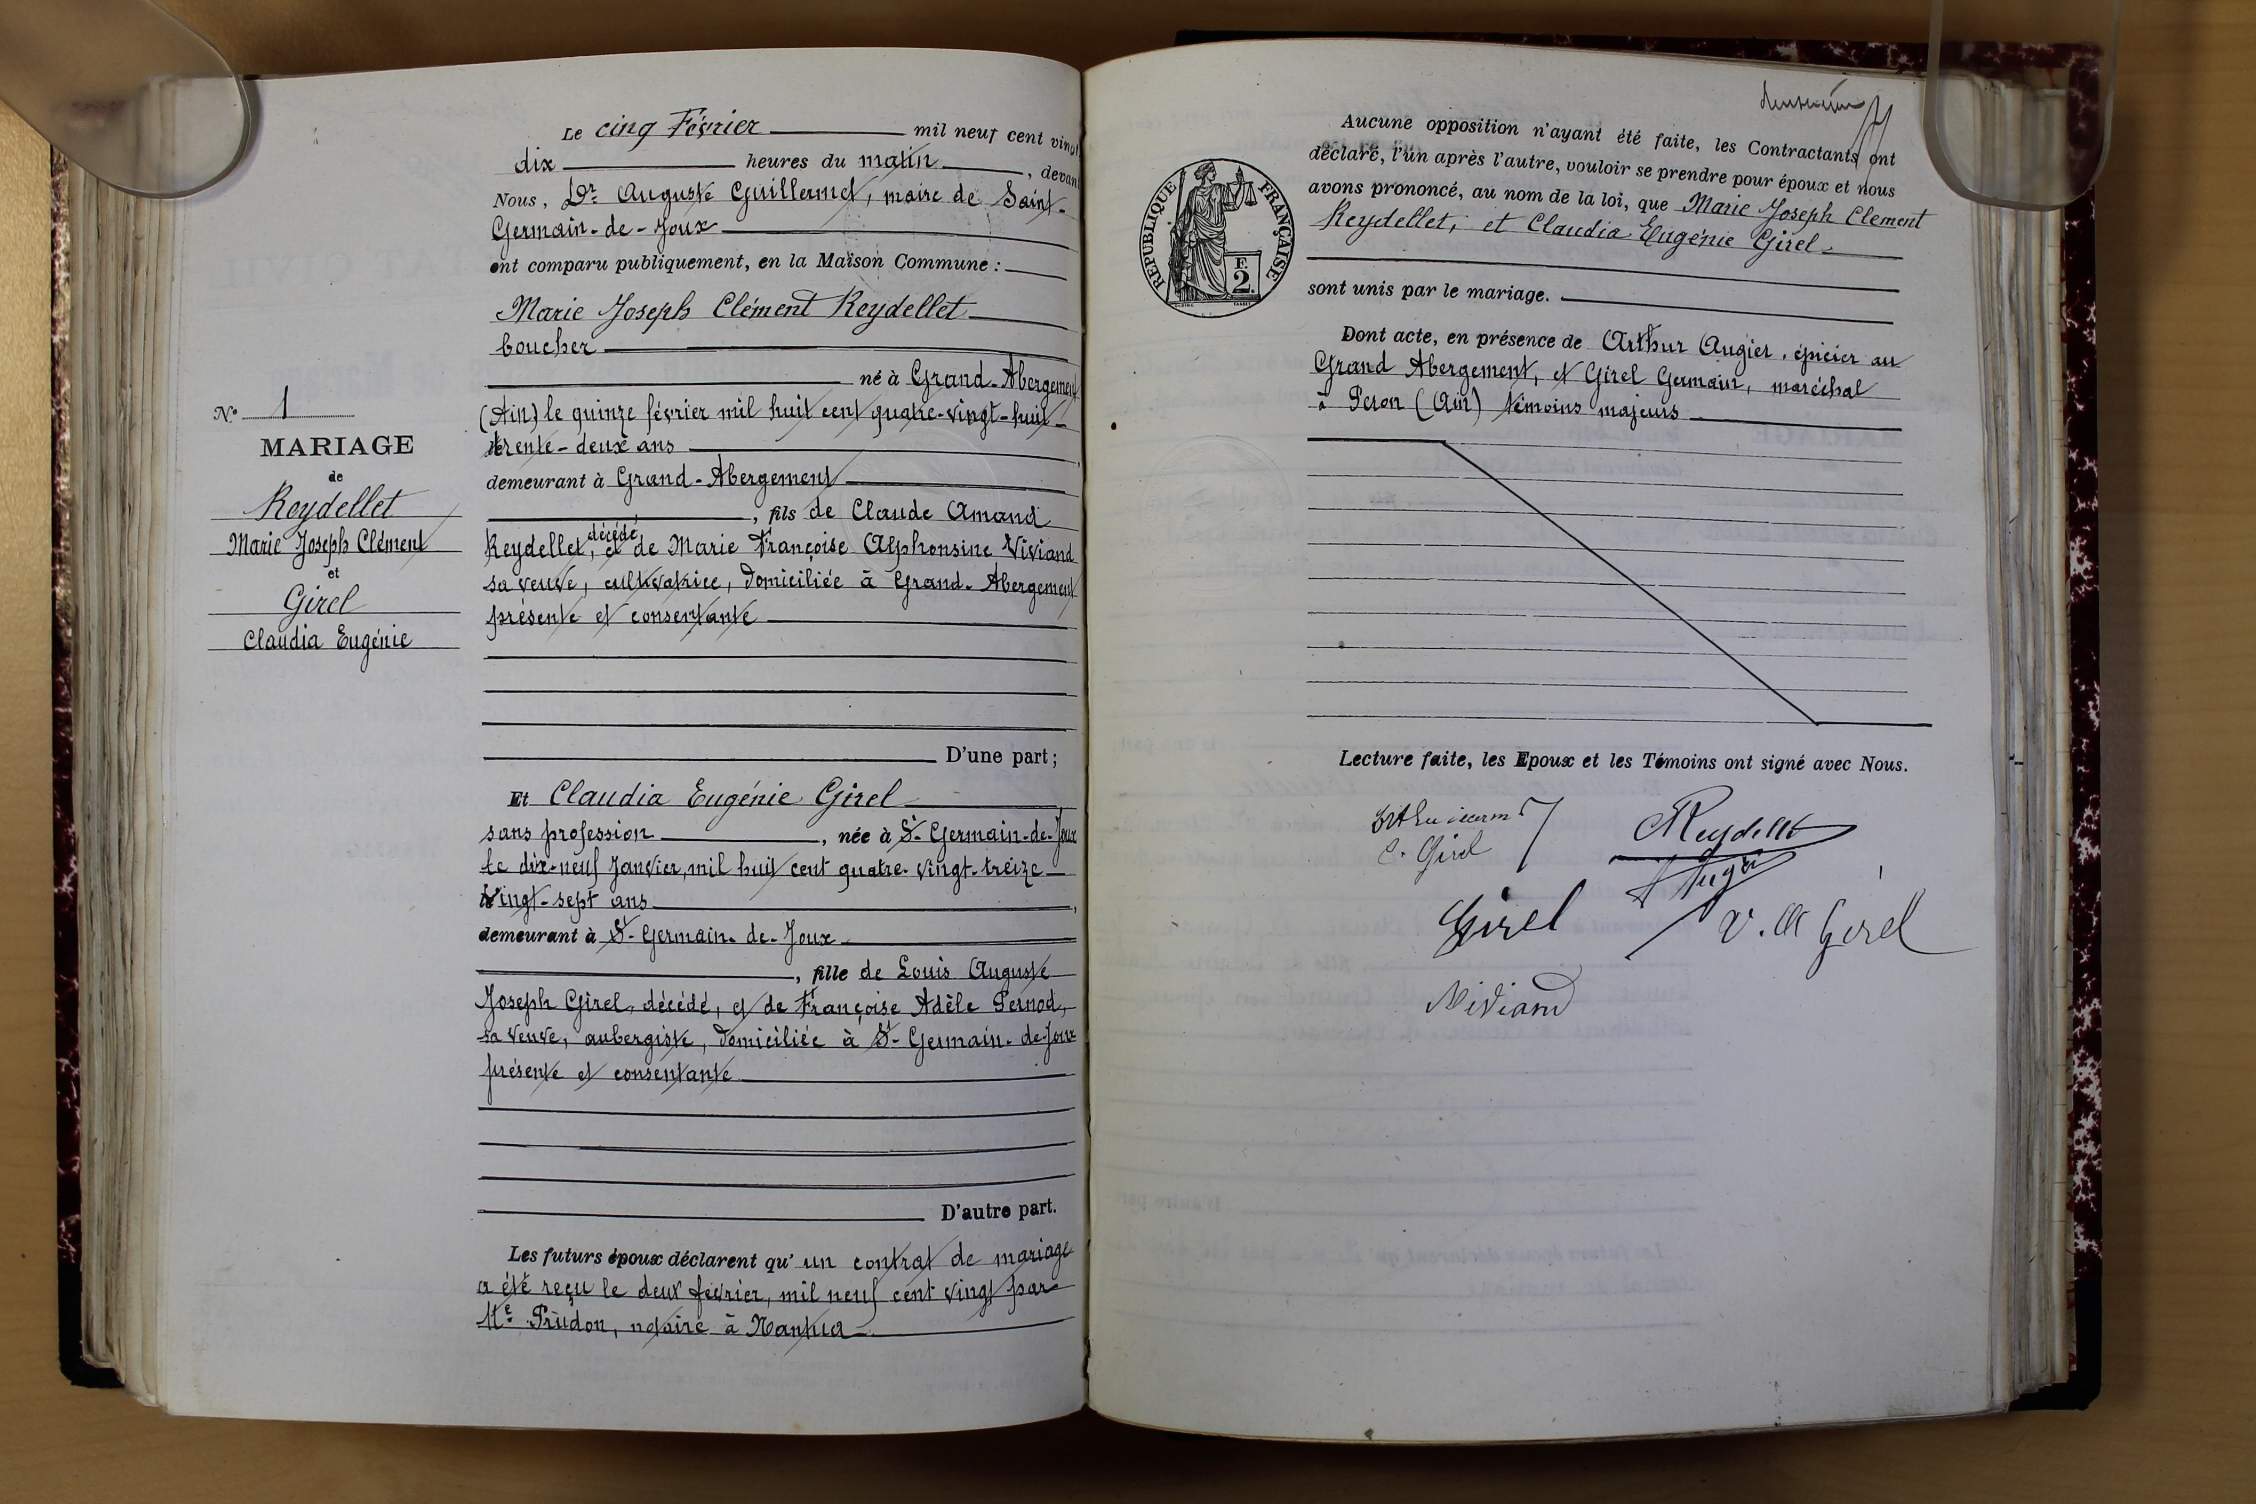 Le cinq Février mil neuf cent vingt
dix heures du matin, devant
Nous, Dr. Auguste Guillermet, maire de Saint-
Germain-de-Joux
ont comparu publiquement, en la Maison Commune :
Marie Joseph Clément Reydellet
boucher
né à Grand-Abergement
(Ain) le quinze février mil huit cent quatre-vingt-huit
trente-deux ans
demeurant à Grand-Abergement
, fils de Claude Amand
Reydellet, décédé, et de Marie Françoise Alphonsine Viviand
sa veuve, cultivatrice, domiciliée à Grand-Abergement
présente et consentante
D'une part ;
Nº 1
MARIAGE
de
Reydellet
Marie Joseph Clément
et
Girel
Claudia Eugénie
Et Claudia Eugénie Girel
sans profession, née à St-Germain-de-Joux
le dix-neuf Janvier, mil huit cent quatre-vingt-treize
Vingt-sept ans,
demeurant à St-Germain-de-Joux
, fille de Louis Auguste
Joseph Girel, décédé, et de Françoise Adèle Pernod,
sa veuve, aubergiste, domiciliée à St-Germain-de-Joux
présente et consentante
D'autre part.
Les futurs époux déclarent qu'un contrat de mariage
a été reçu le deux février, mil neuf cent vingt par
Me Prudon, notaire à Nantua
RÉPUBLIQUE FRANÇAISE
F.
2.
Aucune opposition n'ayant été faite, les Contractants ont
déclaré, l'un après l'autre, vouloir se prendre pour époux et nous
avons prononcé, au nom de la loi, que Marie Joseph Clément
Reydellet, et Claudia Eugénie Girel
sont unis par le mariage.
Dont acte, en présence de Arthur Augier, épicier au
Grand Abergement, et Girel Germain, maréchal
à Peron (Ain) témoins majeurs
Lecture faite, les Epoux et les Témoins ont signé avec Nous.
C. Girel
Reydellet
Augier
Girel
V. A Girel
Viviand